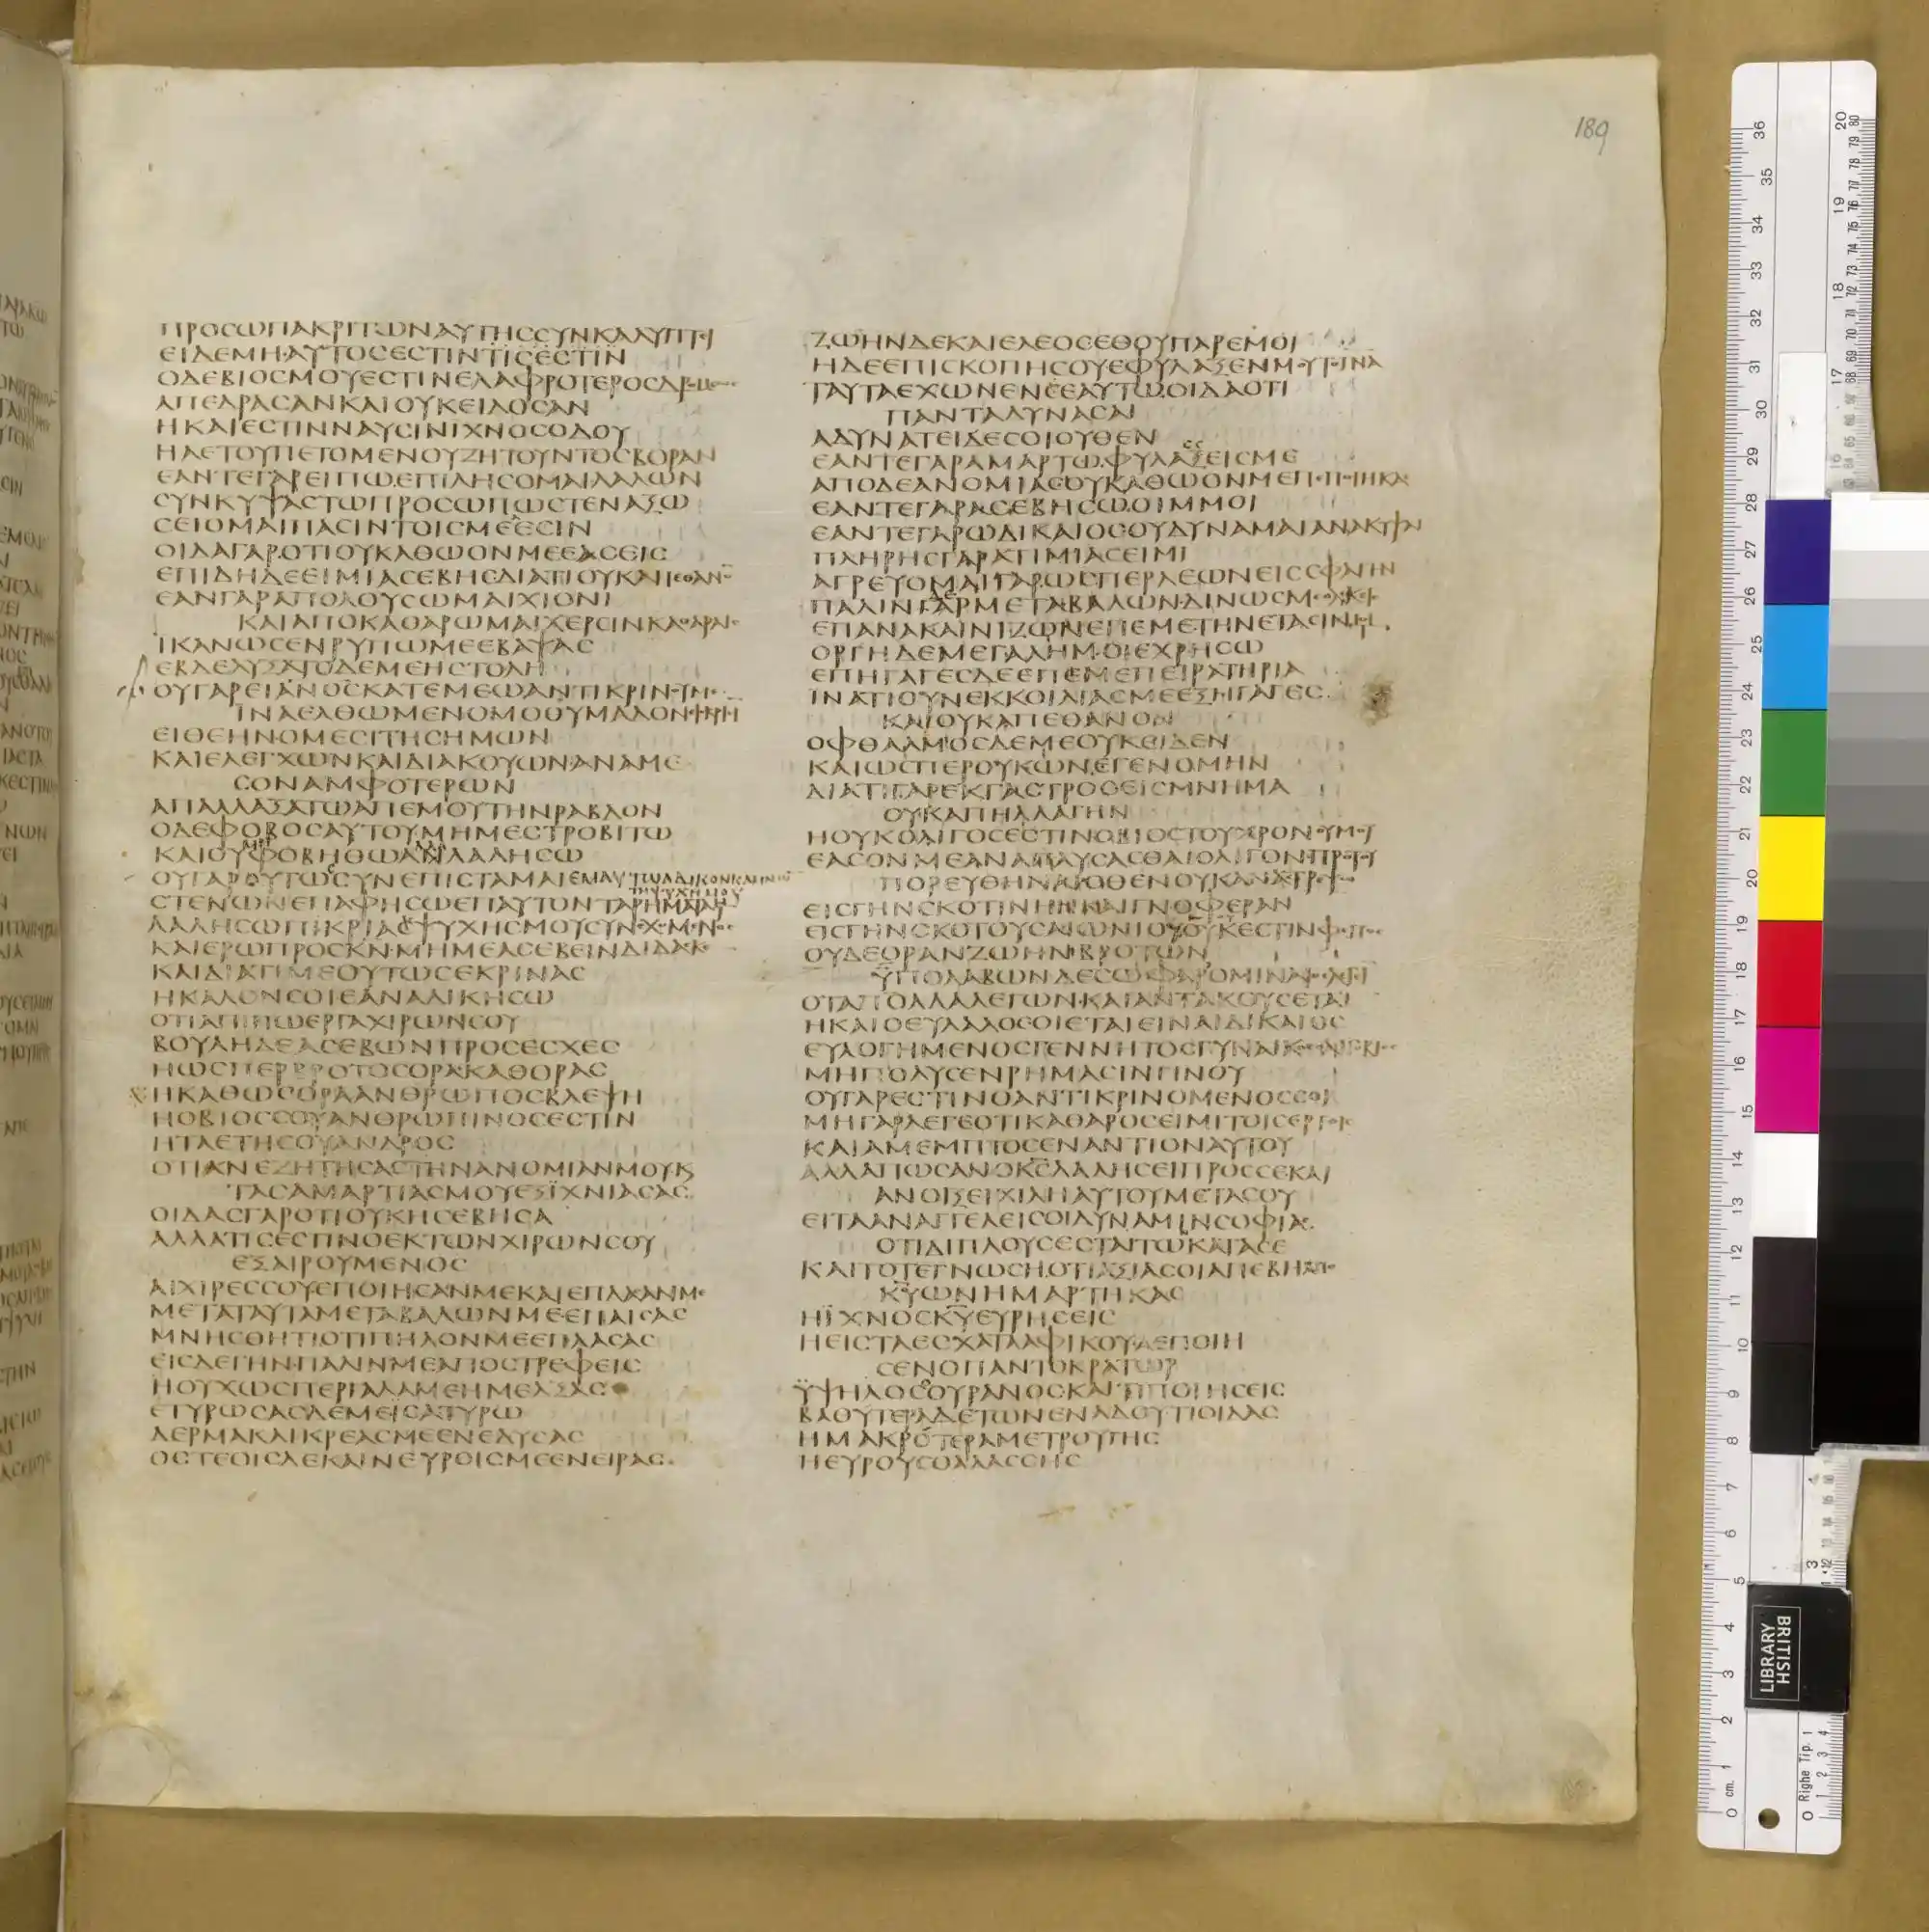 189
ΠΡΟϹΩΠΑΚΡΙΤΩΝΑΥΤΗϹϹΥΝΚΑΛΥΠΤΙ
ΕΙΔΕΜΗΑΥΤΟϹΕϹΤΙΝΤΙϹΕϹΤΙΝ
ΟΔΕΒΙΟϹΜΟΥΕϹΤΙΝΕΛΑΦΡΟΤΕΡΟϹ
ΑΠΕΔΡΑϹΑΝΚΑΙΟΥΚΕΙΔΟϹΑΝ
ΗΚΑΙΕϹΤΙΝΝΑΥϹΙΝΙΧΝΟϹΟΔΟΥ
ΗΑΕΤΟΥΠΕΤΟΜΕΝΟΥΖΗΤΟΥΝΤΟϹΒΟΡΑΝ
ΕΑΝΤΕΓΑΡΕΙΠΩΕΠΙΛΗϹΟΜΑΙΛΑΛΩΝ
ϹΥΝΚΥΨΑϹΤΩΠΡΟϹΩΠΩϹΤΕΝΑΞΩ
ϹΕΙΟΜΑΙΠΑϹΙΝΤΟΙϹΜΕΕϹΙΝ
ΟΙΔΑΓΑΡΟΤΙΟΥΚΑΘΩΟΝΜΕΕΑϹΕΙϹ
ΕΠΙΔΗΔΕΕΙΜΙΑϹΕΒΗϹΔΙΑΤΙΟΥΚΑΠΕΘΑΝΟ
ΕΑΝΓΑΡΑΠΟΛΟΥϹΩΜΑΙΧΙΟΝΙ
ΚΑΙΑΠΟΚΑΘΑΡΩΜΑΙΧΕΡϹΙΝΚΑΘΑΡΑΙ
ΙΚΑΝΩϹΕΝΡΥΠΩΜΕΕΒΑΨΑϹ
ΕΒΔΕΛΥΞΑΤΟΔΕΜΕΗϹΤΟΛΗ
ΟΥΓΑΡΕΙΑΝΟϹΚΑΤΕΜΕΩΑΝΤΙΚΡΙΝΥΜΕ
ΙΝΑΕΛΘΩΜΕΝΟΜΟΘΥΜΑΔΟΝ
ΕΙΘΕΗΝΟΜΕϹΙΤΗϹΗΜΩΝ
ΚΑΙΕΛΕΓΧΩΝΚΑΙΔΙΑΚΟΥΩΝΑΝΑΜΕ
ϹΟΝΑΜΦΟΤΕΡΩΝ
ΑΠΑΛΛΑΞΑΤΩΑΠΕΜΟΥΤΗΝΡΑΒΔΟΝ
ΟΔΕΦΟΒΟϹΑΥΤΟΥΜΗΜΕϹΤΡΟΒΙΤΩ
ΚΑΙΟΥΜΗΦΟΒΗΘΩΑΛΛΑΛΑΛΗϹΩ
ΟΥΓΑΡΟΥΤΩϹϹΥΝΕΠΙϹΤΑΜΑΙΕΜΑΥΤΩ
ϹΤΕΝΩΝΕΠΑΦΗϹΩΕΠΑΥΤΟΝΤΑΡΗΜΑΤΑ
ΛΑΛΗϹΩΠΙΚΡΙΑΨΥΧΗϹΜΟΥϹΥΝΕΧΟΜΕΝΟϹ
ΚΑΙΕΡΩΠΡΟϹΚΝΜΗΜΕΑϹΕΒΕΙΝΔΙΔΑϹΚΕ
ΚΑΙΔΙΑΤΙΜΕΟΥΤΩϹΕΚΡΙΝΑϹ
ΗΚΑΛΟΝϹΟΙΕΑΝΑΔΙΚΗϹΩ
ΟΤΙΑΠΙΠΩΕΡΓΑΧΙΡΩΝϹΟΥ
ΒΟΥΛΗΔΕΑϹΕΒΩΝΠΡΟϹΕϹΧΕϹ
ΗΩϹΠΕΡΒΡΟΤΟϹΟΡΑΚΑΘΟΡΑϹ
ΗΚΑΘΩϹΟΡΑΑΝΘΡΩΠΟϹΒΛΕΨΗ
ΗΟΒΙΟϹϹΟΥΑΝΘΡΩΠΙΝΟϹΕϹΤΙΝ
ΗΤΑΕΤΗϹΟΥΑΝΔΡΟϹ
ΟΤΙΑΝΕΖΗΤΗϹΑϹΤΗΝΑΝΟΜΙΑΝΜΟΥΚ
ΤΑϹΑΜΑΡΤΙΑϹΜΟΥΕΞΙΧΝΙΑϹΑϹ
ΟΙΔΑϹΓΑΡΟΤΙΟΥΚΗϹΕΒΗϹΑ
ΑΛΛΑΤΙϹΕϹΤΙΝΟΕΚΤΩΝΧΙΡΩΝϹΟΥ
ΕΞΑΙΡΟΥΜΕΝΟϹ
ΑΙΧΙΡΕϹϹΟΥΕΠΟΙΗϹΑΝΜΕΚΑΙΕΠΛΑϹΑΝΜΕ
ΜΕΤΑΤΑΥΤΑΜΕΤΑΒΑΛΩΝΜΕΕΠΑΙϹΑϹ
ΜΝΗϹΘΗΤΙΟΤΙΠΗΛΟΝΜΕΕΠΛΑϹΑϹ
ΕΙϹΔΕΓΗΝΠΑΛΙΝΜΕΑΠΟϹΤΡΕΦΕΙϹ
ΗΟΥΧΩϹΠΕΡΓΑΛΑΜΕΗΜΕΛΞΑϹ
ΕΤΥΡΩϹΑϹΔΕΜΕΙϹΑΤΥΡΩ
ΔΕΡΜΑΚΑΙΚΡΕΑϹΜΕΕΝΕΔΥϹΑϹ
ΟϹΤΕΟΙϹΔΕΚΑΙΝΕΥΡΟΙϹΜΕΕΝΕΙΡΑϹ
ΖΩΗΝΔΕΚΑΙΕΛΕΟϹΕΘΟΥΠΑΡΕΜΟΙ
ΗΔΕΕΠΙϹΚΟΠΗϹΟΥΕΦΥΛΑΞΕΝΜΟΥΤΟΠΝΑ
ΤΑΥΤΑΕΧΩΝΕΝϹΕΑΥΤΩΟΙΔΑΟΤΙ
ΠΑΝΤΑΔΥΝΑϹΑΙ
ΑΔΥΝΑΤΕΙΔΕϹΟΙΟΥΘΕΝ
ΕΑΝΤΕΓΑΡΑΜΑΡΤΩΦΥΛΑΞΕΙϹΜΕ
ΑΠΟΔΕΑΝΟΜΙΑϹΟΥΚΑΘΩΟΝΜΕΠΕΠΟΙΗΚΑ
ΕΑΝΤΕΓΑΡΑϹΕΒΗϹΩΟΙΜΜΟΙ
ΕΑΝΤΕΓΑΡΩΔΙΚΑΙΟϹΟΥΔΥΝΑΜΑΙΑΝΑΚΥΨΑΙ
ΠΛΗΡΗϹΓΑΡΑΤΙΜΙΑϹΕΙΜΙ
ΑΓΡΕΥΟΜΑΙΓΑΡΩϹΠΕΡΛΕΩΝΕΙϹϹΦΑΓΗΝ
ΠΑΛΙΝΓΑΡΜΕΤΑΒΑΛΩΝΔΙΝΩϹΜΕΟΛΕΚΕΙ
ΕΠΑΝΑΚΑΙΝΙΖΩΝΕΠΕΜΕΤΗΝΕΤΑϹΙΝΜΟΥ
ΟΡΓΗΔΕΜΕΓΑΛΗΜΟΙΕΧΡΗϹΩ
ΕΠΗΓΑΓΕϹΔΕΕΠΕΜΕΠΕΙΡΑΤΗΡΙΑ
ΙΝΑΤΙΟΥΝΕΚΚΟΙΛΙΑϹΜΕΕΞΗΓΑΓΕϹ
ΚΑΙΟΥΚΑΠΕΘΑΝΟΝ
ΟΦΘΑΛΜΟϹΔΕΜΕΟΥΚΕΙΔΕΝ
ΚΑΙΩϹΠΕΡΟΥΚΩΝΕΓΕΝΟΜΗΝ
ΔΙΑΤΙΓΑΡΕΚΓΑϹΤΡΟϹΕΙϹΜΝΗΜΑ
ΟΥΚΑΠΗΛΛΑΓΗΝ
ΗΟΥΚΟΛΙΓΟϹΕϹΤΙΝΟΒΙΟϹΤΟΥΧΡΟΝΟΥΜΟΥ
ΕΑϹΟΝΜΕΑΝΑΠΑΥϹΑϹΘΑΙΟΛΙΓΟΝΠΡΟΤΟΥ
ΠΟΡΕΥΘΗΝΑΙΟΘΕΝΟΥΚΑΝΑϹΤΡΕΨΩ
ΕΙϹΓΗΝϹΚΟΤΙΝΗΝΚΑΙΓΝΟΦΕΡΑΝ
ΕΙϹΓΗΝϹΚΟΤΟΥϹΑΙΩΝΙΟΥΟΥΟΥΚΕϹΤΙΝΦΕΓΓΟϹ
ΟΥΔΕΟΡΑΝΖΩΗΝΒΡΟΤΩΝ
ΥΠΟΛΑΒΩΝΔΕϹΩΦΑΡΟΜΙΝΑΙΟϹΛΕΓΙ
ΟΤΑΠΟΛΛΑΛΕΓΩΝΚΑΙΑΝΤΑΚΟΥϹΕΤΑΙ
ΗΚΑΙΟΕΥΛΑΛΟϹΟΙΕΤΑΙΕΙΝΑΙΔΙΚΑΙΟϹ
ΕΥΛΟΓΗΜΕΝΟϹΓΕΝΝΗΤΟϹΓΥΝΑΙΚΟϹ
ΜΗΠΟΛΥϹΕΝΡΗΜΑϹΙΝΓΙΝΟΥ
ΟΥΓΑΡΕϹΤΙΝΟΑΝΤΙΚΡΙΝΟΜΕΝΟϹϹΟΙ
ΜΗΓΑΡΛΕΓΕΟΤΙΚΑΘΑΡΟϹΕΙΜΙΤΟΙϹΕΡΓΟΙϹ
ΚΑΙΑΜΕΜΠΤΟϹΕΝΑΝΤΙΟΝΑΥΤΟΥ
ΑΛΛΑΠΩϹΑΝΟΚϹΛΑΛΗϹΕΙΠΡΟϹϹΕΚΑΙ
ΑΝΟΙΞΕΙΧΙΛΗΑΥΤΟΥΜΕΤΑϹΟΥ
ΕΙΤΑΑΝΑΓΓΕΛΕΙϹΟΙΔΥΝΑΜΙΝϹΟΦΙΑϹ
ΟΤΙΔΙΠΛΟΥϹΕϹΤΑΙΤΩΚΑΤΑϹΕ
ΚΑΙΤΟΤΕΓΝΩϹΗΟΤΙΑΞΙΑϹΟΙΑΠΕΒΗΑΠΟ
ΚΥΩΝΗΜΑΡΤΗΚΑϹ
ΗΙΧΝΟϹΚΥΕΥΡΗϹΕΙϹ
ΗΕΙϹΤΑΕϹΧΑΤΑΑΦΙΚΟΥΑΕΠΟΙΗ
ϹΕΝΟΠΑΝΤΟΚΡΑΤΩΡ
ΥΨΗΛΟϹΟΟΥΡΑΝΟϹΚΑΙΤΙΠΟΙΗϹΕΙϹ
ΒΑΘΥΤΕΡΑΔΕΤΩΝΕΝΑΔΟΥΤΙΟΙΔΑϹ
ΗΜΑΚΡΟΤΕΡΑΜΕΤΡΟΥΓΗϹ
ΗΕΥΡΟΥϹΘΑΛΑϹϹΗϹ
BRITISH
LIBRARY
0 cm. 1 2 3 4 5 6 7 8 9 10 11 12 13 14 15 16 17 18 19 20 21 22 23 24 25 26 27 28 29 30 31 32 33 34 35 36
0 Righe Tip. 1